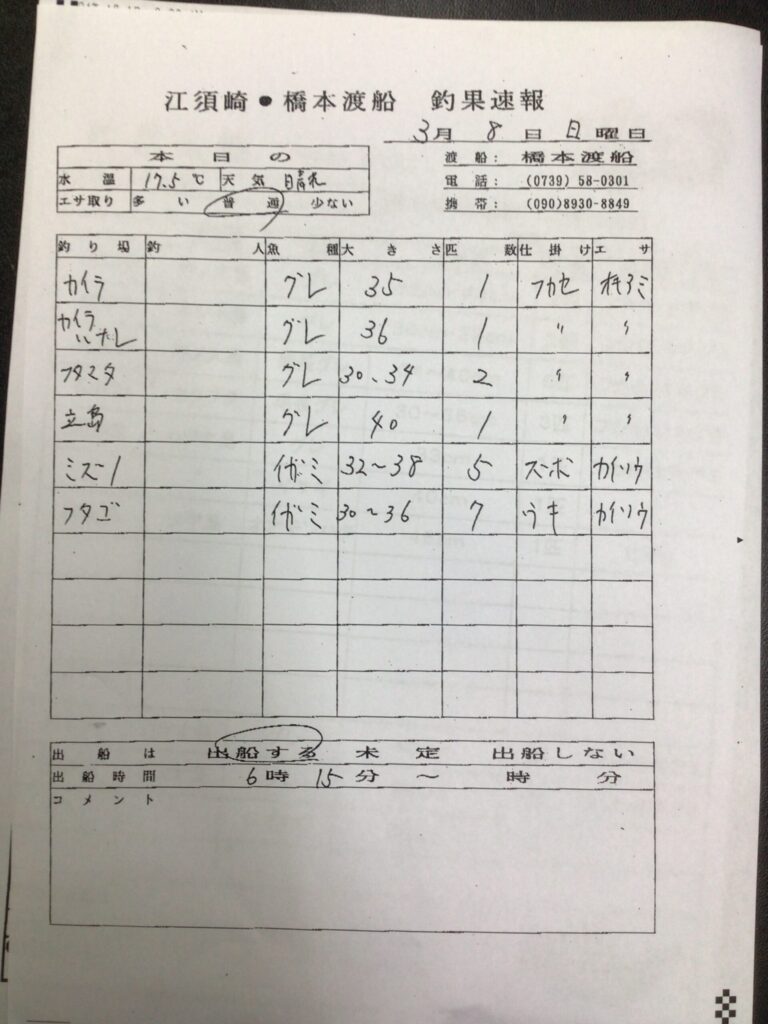 江須崎・橋本渡船 釣果速報
3月 8 日 日 曜日
本日の
水温 17.5℃ 天気 晴れ
エサ取り 多い 普通 少ない
渡船: 橋本渡船
電話: (0739) 58-0301
携帯: (090)8930-8849
釣り場 釣人 魚種 大きさ 匹数 仕掛け エサ
カイラ グレ 35 1 フカセ オキアミ
カイラ ハナレ グレ 36 1 〃 〃
フタマタ グレ 30、34 2 〃 〃
立島 グレ 40 1 〃 〃
ミズノ イガミ 32〜38 5 ズボ カイソウ
フタゴ イガミ 30〜36 7 ウキ カイソウ
出船は 出船する 未定 出船しない
出船時間 6時 15分 〜 時 分
コメント